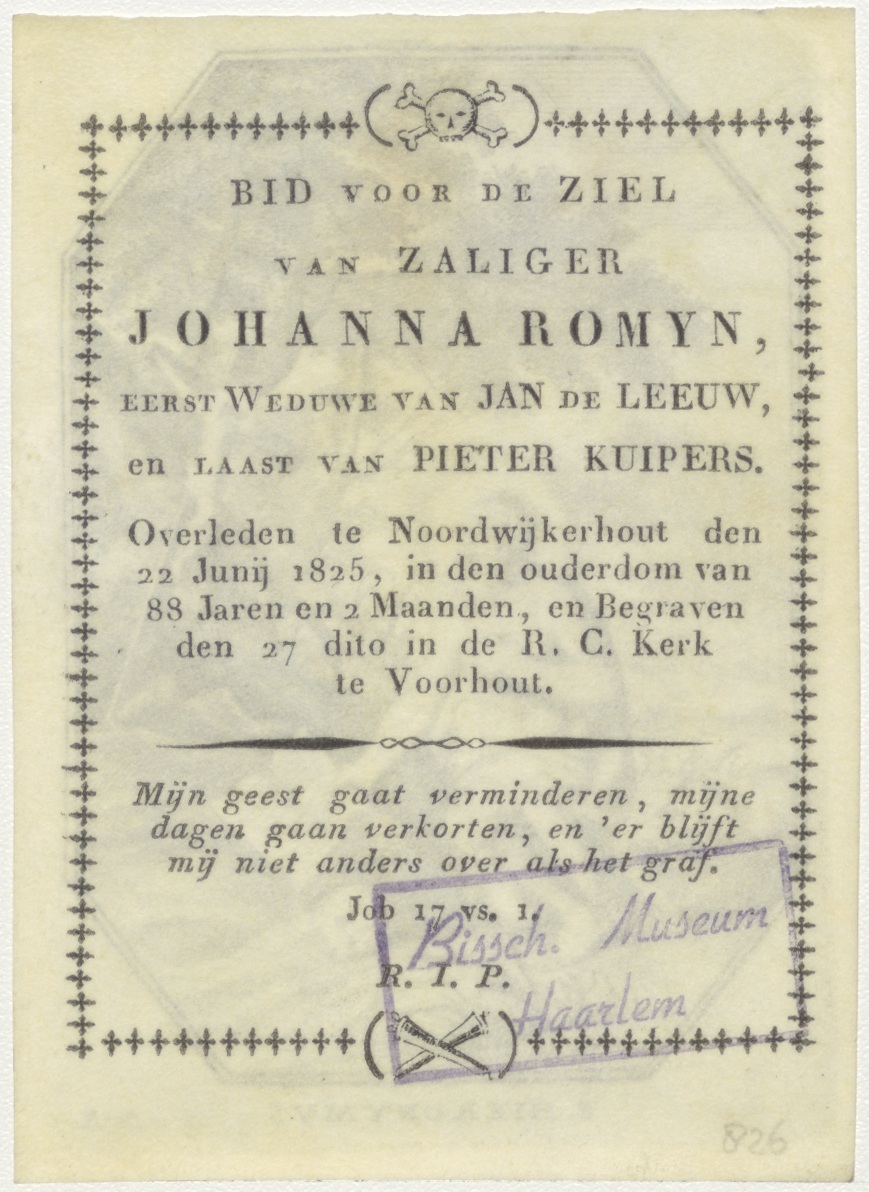 BID VOOR DE ZIEL
VAN ZALIGER
JOHANNA ROMYN,
EERST WEDUWE VAN JAN DE LEEUW,
en LAAST VAN PIETER KUIPERS.
Overleden te Noordwijkerhout den
22 Junij 1825, in den ouderdom van
88 Jaren en 2 Maanden, en Begraven
den 27 dito in de R. C. Kerk
te Voorhout.
Mijn geest gaat verminderen, mijne
dagen gaan verkorten, en 'er blijft
mij niet anders over als het graf.
Job 17 vs. 1.
R. I. P.
Bissch. Museum
Haarlem
826